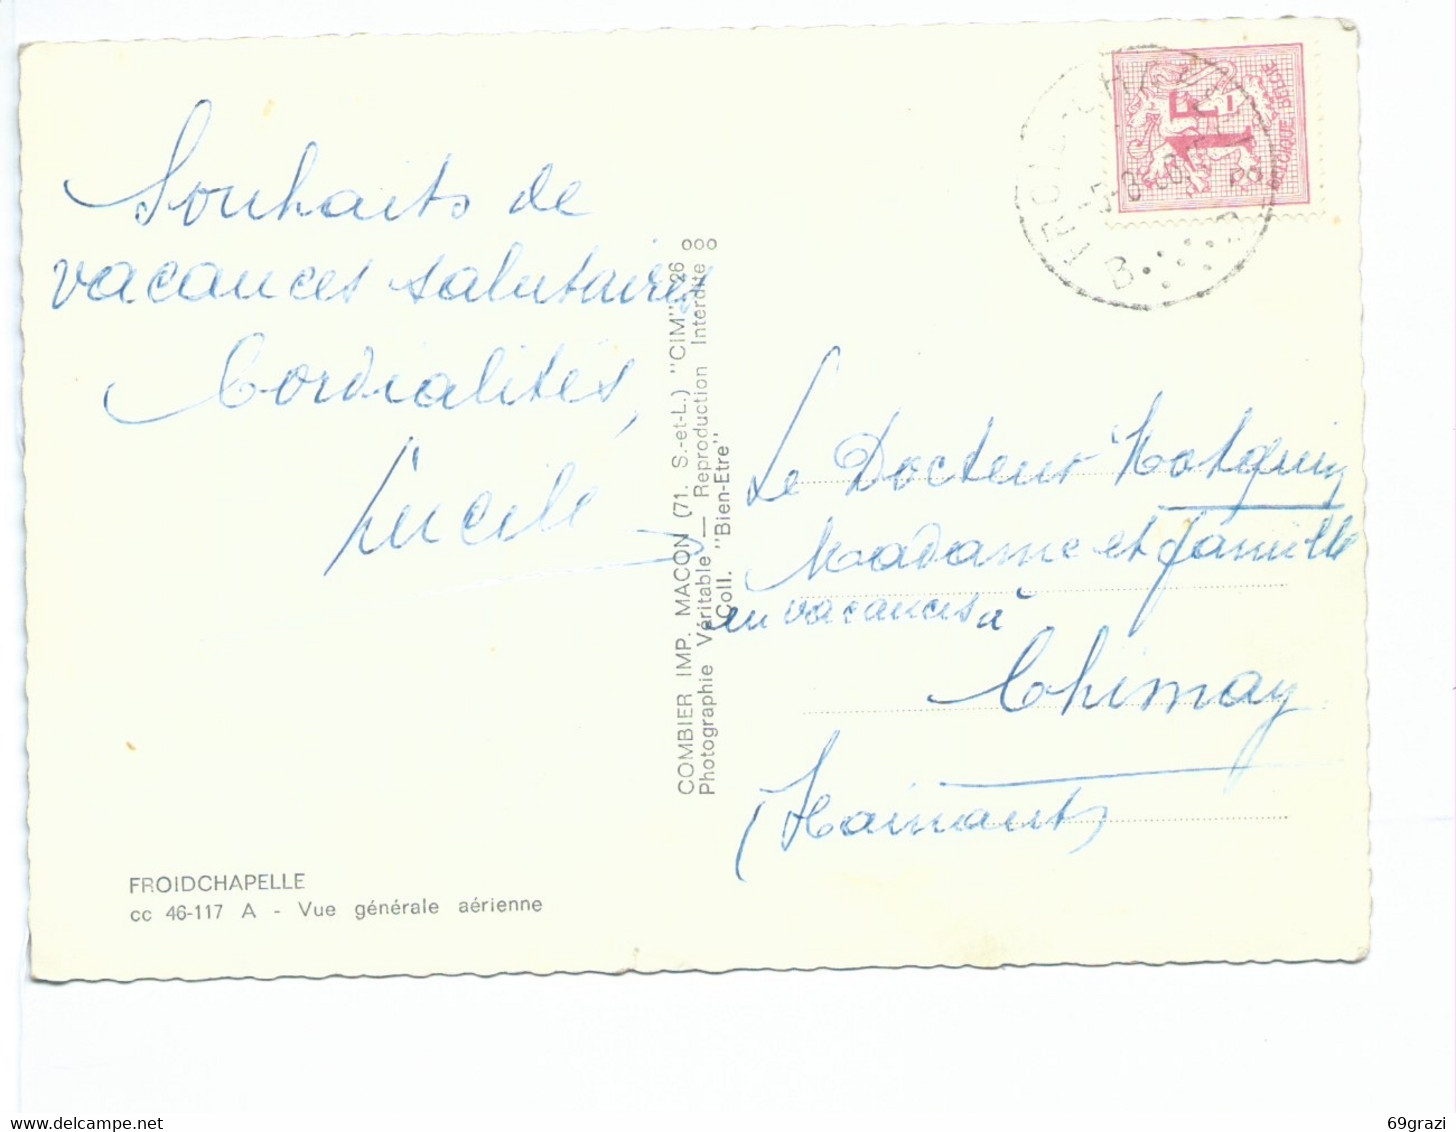 Souhaits de
vacances salutaires
Cordialités,
Lucile
FROIDCHAPELLE
cc 46-117 A - Vue générale aérienne
COMBIER IMP. MACON (71. S.-et-L.) "CIM" 26
Photographie Véritable — Reproduction Interdite
Coll. "Bien-Etre"
1F
BELGIQUE BELGIE
B
Le Docteur
Madame et famille
en vacances à
Chimay
(Hainaut)
www.delcampe.net
69grazi